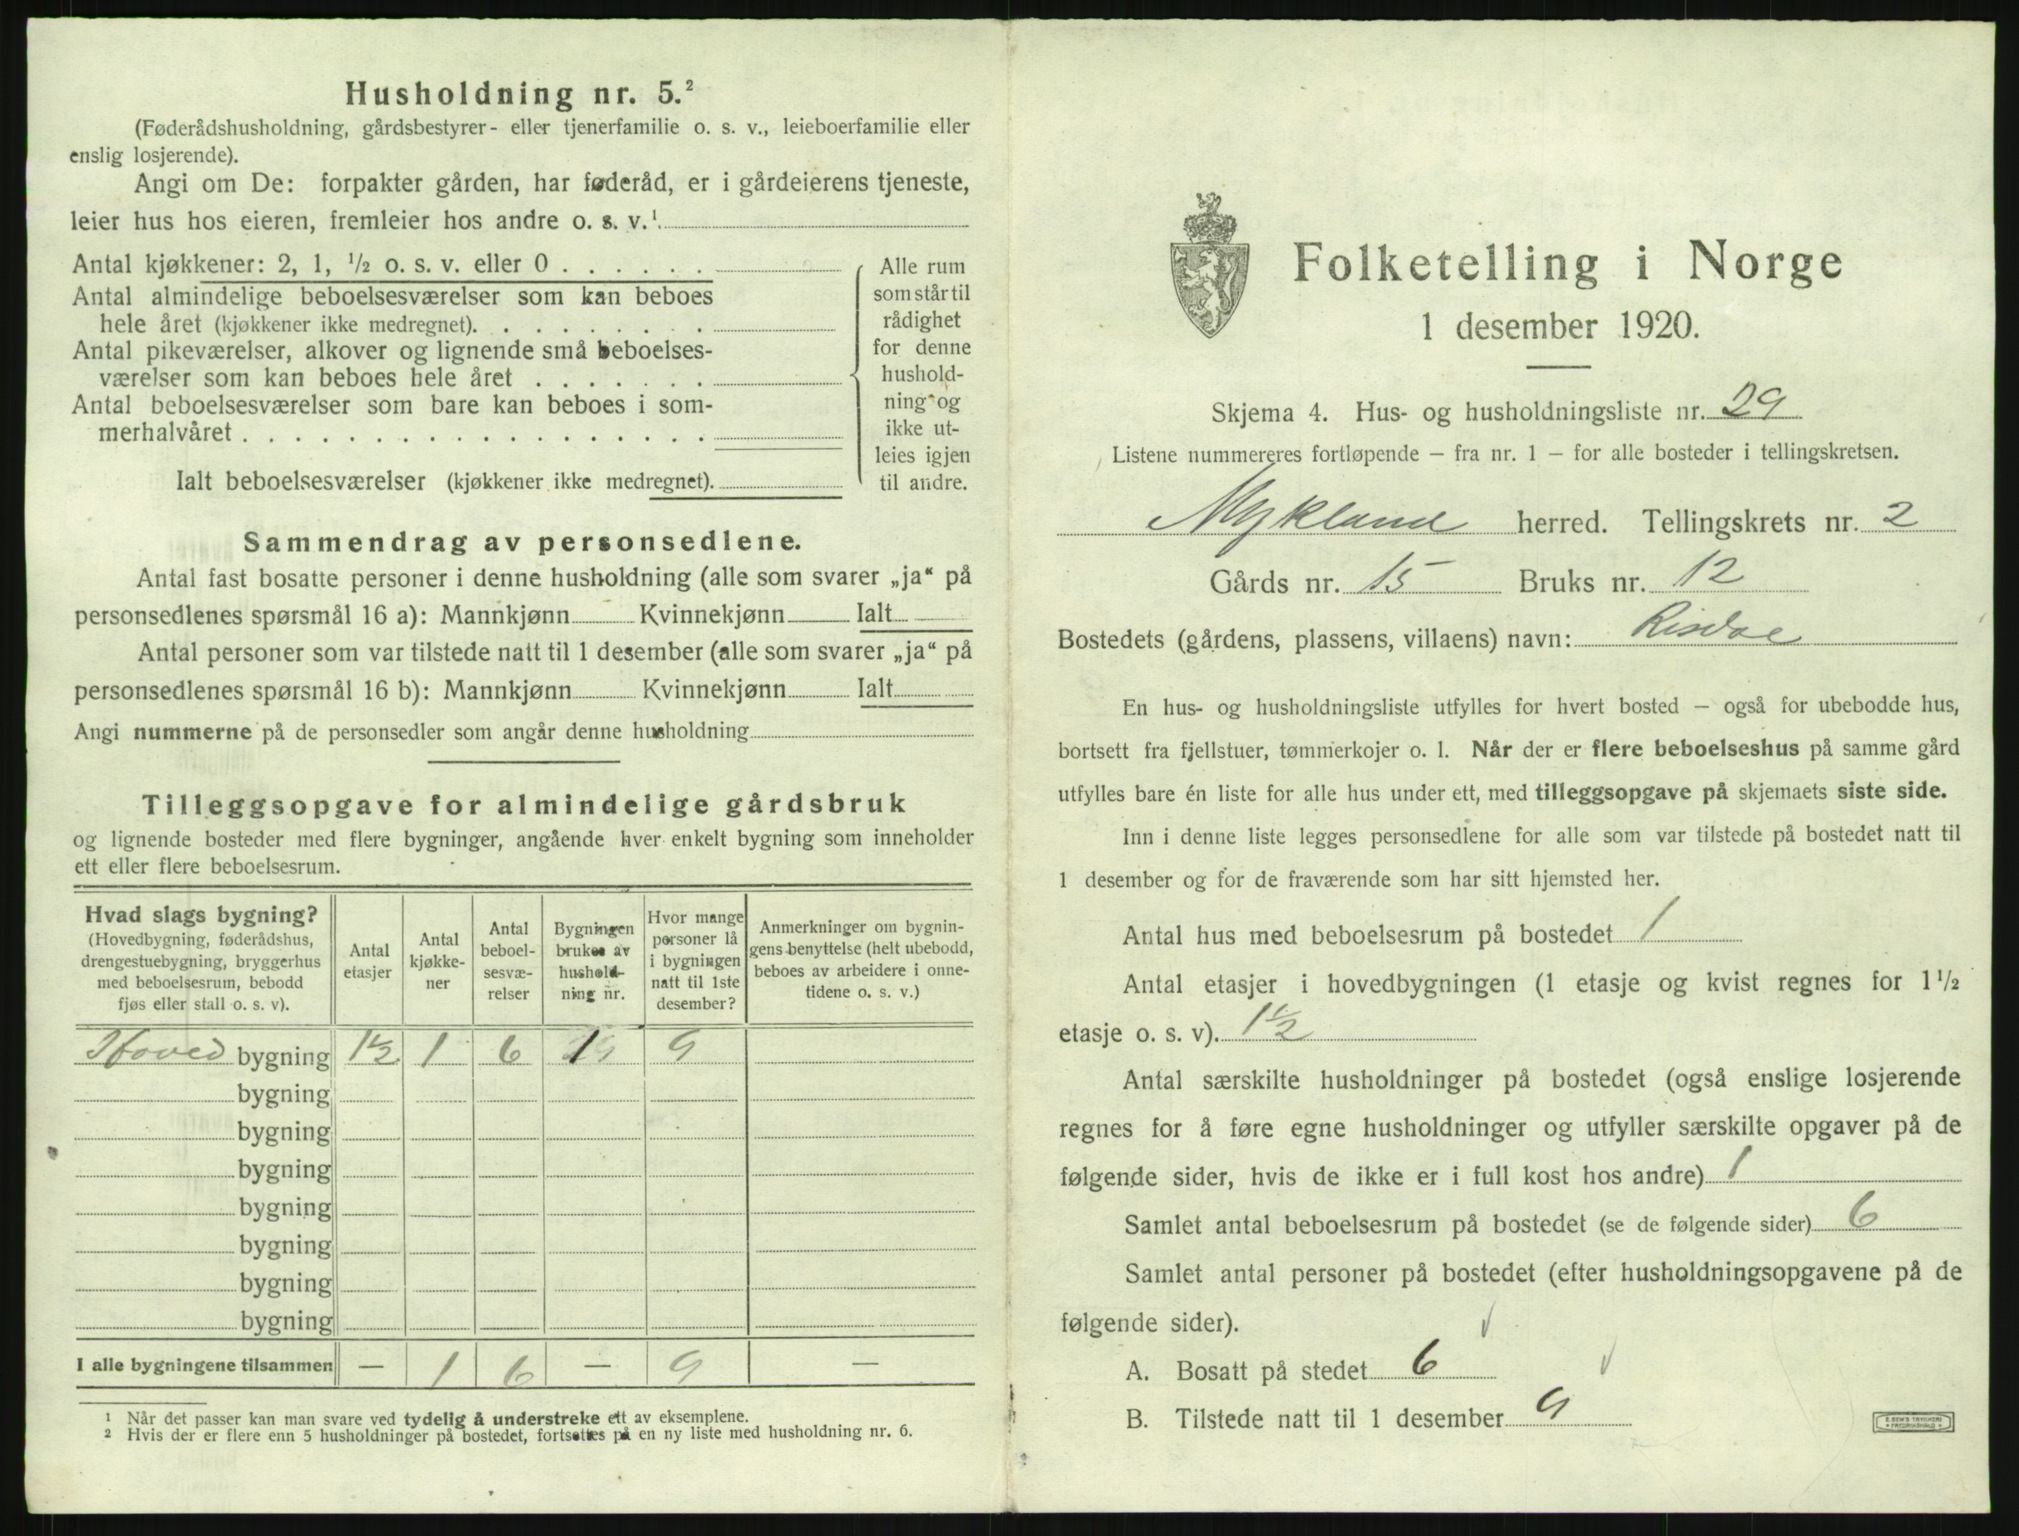 Husholdning nr. 5.²
(Føderådshusholdning, gårdsbestyrer- eller tjenerfamilie o. s. v., leieboerfamilie eller
enslig losjerende).
Angi om De: forpakter gården, har føderåd, er i gårdeierens tjeneste,
leier hus hos eieren, fremleier hos andre o. s. v.¹
Antal kjøkkener: 2, 1, ½ o. s. v. eller 0
Antal almindelige beboelsesværelser som kan beboes
hele året (kjøkkener ikke medregnet).
Antal pikeværelser, alkover og lignende små beboelses-
værelser som kan beboes hele året
Antal beboelsesværelser som bare kan beboes i som-
merhalvåret
Ialt beboelsesværelser (kjøkkener ikke medregnet).
Alle rum
som står til
rådighet
for denne
hushold-
ning og
ikke ut-
leies igjen
til andre.
Sammendrag av personsedlene.
Antal fast bosatte personer i denne husholdning (alle som svarer „ja“ på
personsedlenes spørsmål 16 a): Mannkjønn Kvinnekjønn Ialt
Antal personer som var tilstede natt til 1 desember (alle som svarer „ja“ på
personsedlenes spørsmål 16 b): Mannkjønn Kvinnekjønn Ialt
Angi nummerne på de personsedler som angår denne husholdning
Tilleggsopgave for almindelige gårdsbruk
og lignende bosteder med flere bygninger, angående hver enkelt bygning som inneholder
ett eller flere beboelsesrum.
Hvad slags bygning?
(Hovedbygning, føderådshus,
drengestuebygning, bryggerhus
med beboelsesrum, bebodd
fjøs eller stall o. s. v).
Antal
etasjer
Antal
kjøkke-
ner
Antal
beboel-
sesvæ-
relser
Bygningen
brukes av
hushold-
ning nr.
Hvor mange
personer lå
i bygningen
natt til 1ste
desember?
Anmerkninger om bygnin-
gens benyttelse (helt ubebodd,
beboes av arbeidere i onne-
tidene o. s. v.)
Hoved bygning 1½ 1 6 1 9
bygning
bygning
bygning
bygning
bygning
bygning
bygning
I alle bygningene tilsammen — 1 6 — 9 —
¹ Når det passer kan man svare ved tydelig å understreke ett av eksemplene.
² Hvis der er flere enn 5 husholdninger på bostedet, fortsettes på en ny liste med husholdning nr. 6.
Folketelling i Norge
1 desember 1920.
Skjema 4. Hus- og husholdningsliste nr. 29
Listene nummereres fortløpende – fra nr. 1 – for alle bosteder i tellingskretsen.
Mykland herred. Tellingskrets nr. 2
Gårds nr. 15 Bruks nr. 12
Bostedets (gårdens, plassens, villaens) navn: Risdal
En hus- og husholdningsliste utfylles for hvert bosted – også for ubebodde hus,
bortsett fra fjellstuer, tømmerkojer o. l. Når der er flere beboelseshus på samme gård
utfylles bare én liste for alle hus under ett, med tilleggsopgave på skjemaets siste side.
Inn i denne liste legges personsedlene for alle som var tilstede på bostedet natt til
1 desember og for de fraværende som har sitt hjemsted her.
Antal hus med beboelsesrum på bostedet 1
Antal etasjer i hovedbygningen (1 etasje og kvist regnes for 1½
etasje o. s. v). 1½
Antal særskilte husholdninger på bostedet (også enslige losjerende
regnes for å føre egne husholdninger og utfyller særskilte opgaver på de
følgende sider, hvis de ikke er i full kost hos andre) 1
Samlet antal beboelsesrum på bostedet (se de følgende sider) 6
Samlet antal personer på bostedet (efter husholdningsopgavene på de
følgende sider).
A. Bosatt på stedet 6
B. Tilstede natt til 1 desember 9